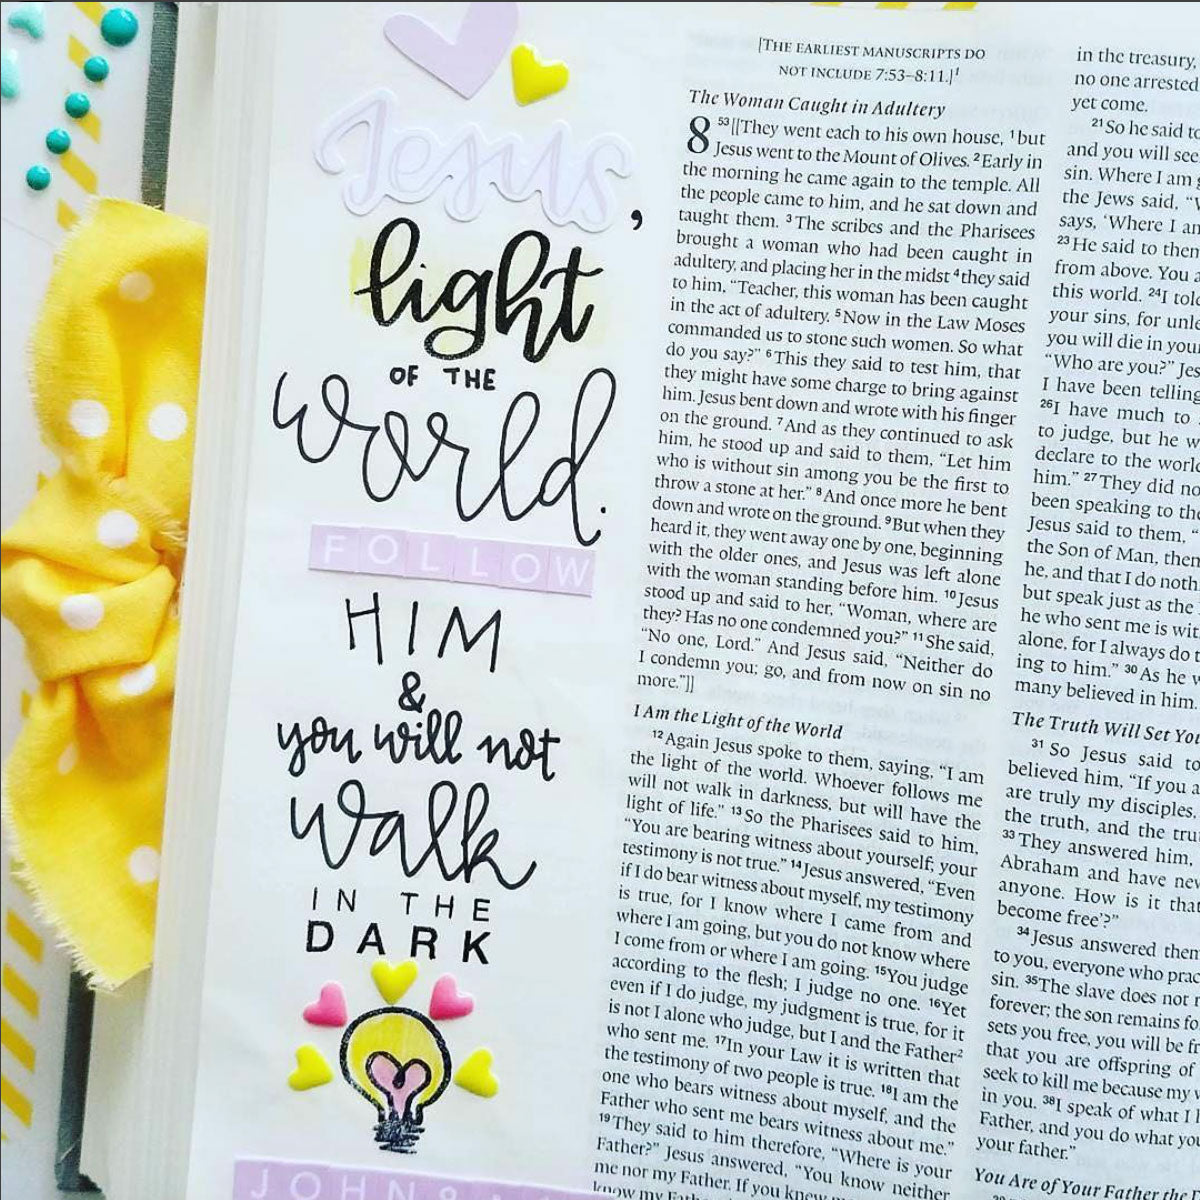 Jesus,
light
OF THE
World.
FOLLOW
HIM
&
you will not
Walk
IN THE
DARK
[THE EARLIEST MANUSCRIPTS DO
NOT INCLUDE 7:53–8:11.]1
The Woman Caught in Adultery
8 53[[They went each to his own house, 1but
Jesus went to the Mount of Olives. 2Early in
the morning he came again to the temple. All
the people came to him, and he sat down and
taught them. 3The scribes and the Pharisees
brought a woman who had been caught in
adultery, and placing her in the midst 4they said
to him, “Teacher, this woman has been caught
in the act of adultery. 5Now in the Law Moses
commanded us to stone such women. So what
do you say?” 6This they said to test him, that
they might have some charge to bring against
him. Jesus bent down and wrote with his finger
on the ground. 7And as they continued to ask
him, he stood up and said to them, “Let him
who is without sin among you be the first to
throw a stone at her.” 8And once more he bent
down and wrote on the ground. 9But when they
heard it, they went away one by one, beginning
with the older ones, and Jesus was left alone
with the woman standing before him. 10Jesus
stood up and said to her, “Woman, where are
they? Has no one condemned you?” 11She said,
“No one, Lord.” And Jesus said, “Neither do
I condemn you; go, and from now on sin no
more.”]]
I Am the Light of the World
12Again Jesus spoke to them, saying, “I am
the light of the world. Whoever follows me
will not walk in darkness, but will have the
light of life.” 13So the Pharisees said to him,
“You are bearing witness about yourself; your
testimony is not true.” 14Jesus answered, “Even
if I do bear witness about myself, my testimony
is true, for I know where I came from and
where I am going, but you do not know where
I come from or where I am going. 15You judge
according to the flesh; I judge no one. 16Yet
even if I do judge, my judgment is true, for it
is not I alone who judge, but I and the Father2
who sent me. 17In your Law it is written that
the testimony of two people is true. 18I am the
one who bears witness about myself, and the
Father who sent me bears witness about me.”
19They said to him therefore, “Where is your
Father?” Jesus answered, “You know neither
me nor my Father. If you knew
know my
in the treasury,
no one arrested
yet come.
21So he said to
and you will see
sin. Where I am
the Jews said, “
says, ‘Where I am
23He said to them
from above. You a
this world. 24I told
your sins, for unle
you will die in your
“Who are you?” Jes
I have been telling
26I have much to
to judge, but he w
declare to the world
him.” 27They did no
been speaking to the
Jesus said to them, “
the Son of Man, then
he, and that I do noth
but speak just as the
he who sent me is wit
alone, for I always do t
ing to him.” 30As he
many believed in him.
The Truth Will Set You
31So Jesus said to
believed him, “If you a
are truly my disciples,
the truth, and the tru
33They answered him,
Abraham and have nev
anyone. How is it that
become free’?”
34Jesus answered them
to you, everyone who prac
sin. 35The slave does not
forever; the son remains fo
sets you free, you will be fr
that you are offspring of
seek to kill me because my
in you. 38I speak of what I
Father, and you do what you
your father.”
You Are of Your Father the
JOHN 8